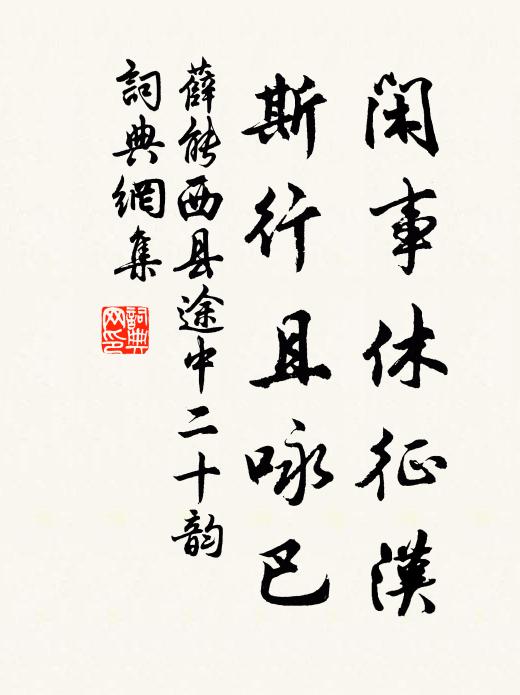 闲事休征漢
斯行且咏巴
薛能西县途中二十韵
詞典網集
詞典网印